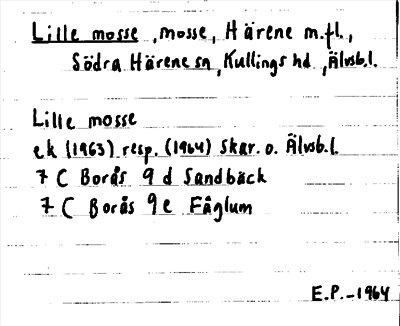 Lille mosse, mosse, Härene m.fl.,
Södra Härene sn, Kullings hd, Älvsb.l.
Lille mosse
ek (1963) resp. (1964) Skar. o. Älvsb.l.
7 C Borås 9 d Sandbäck
7 C Borås 9 e Fåglum
E.P. - 1964